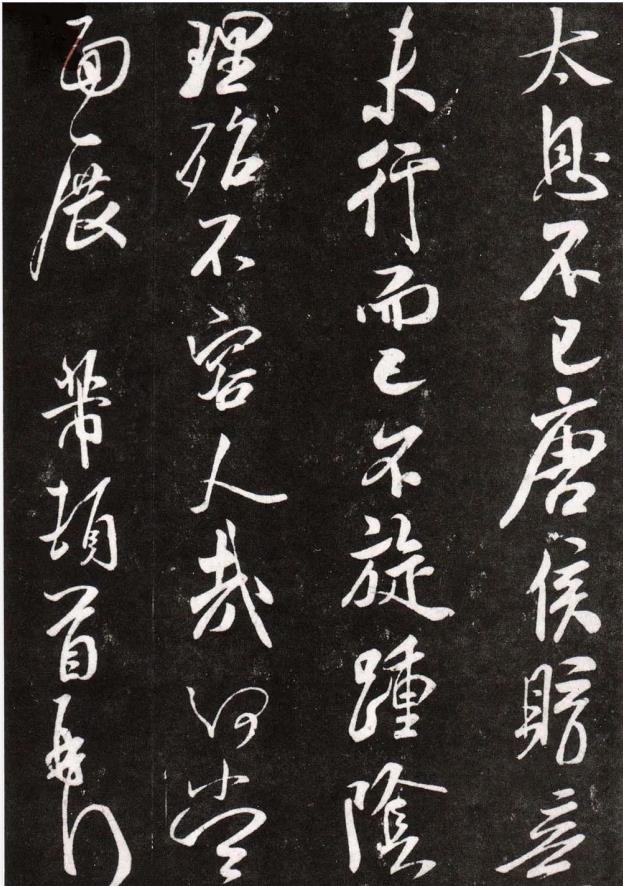 太息不已唐侯賠言
未行而已不旋踵陰
理殆不容人哉何當
面展 芾頓首再拜